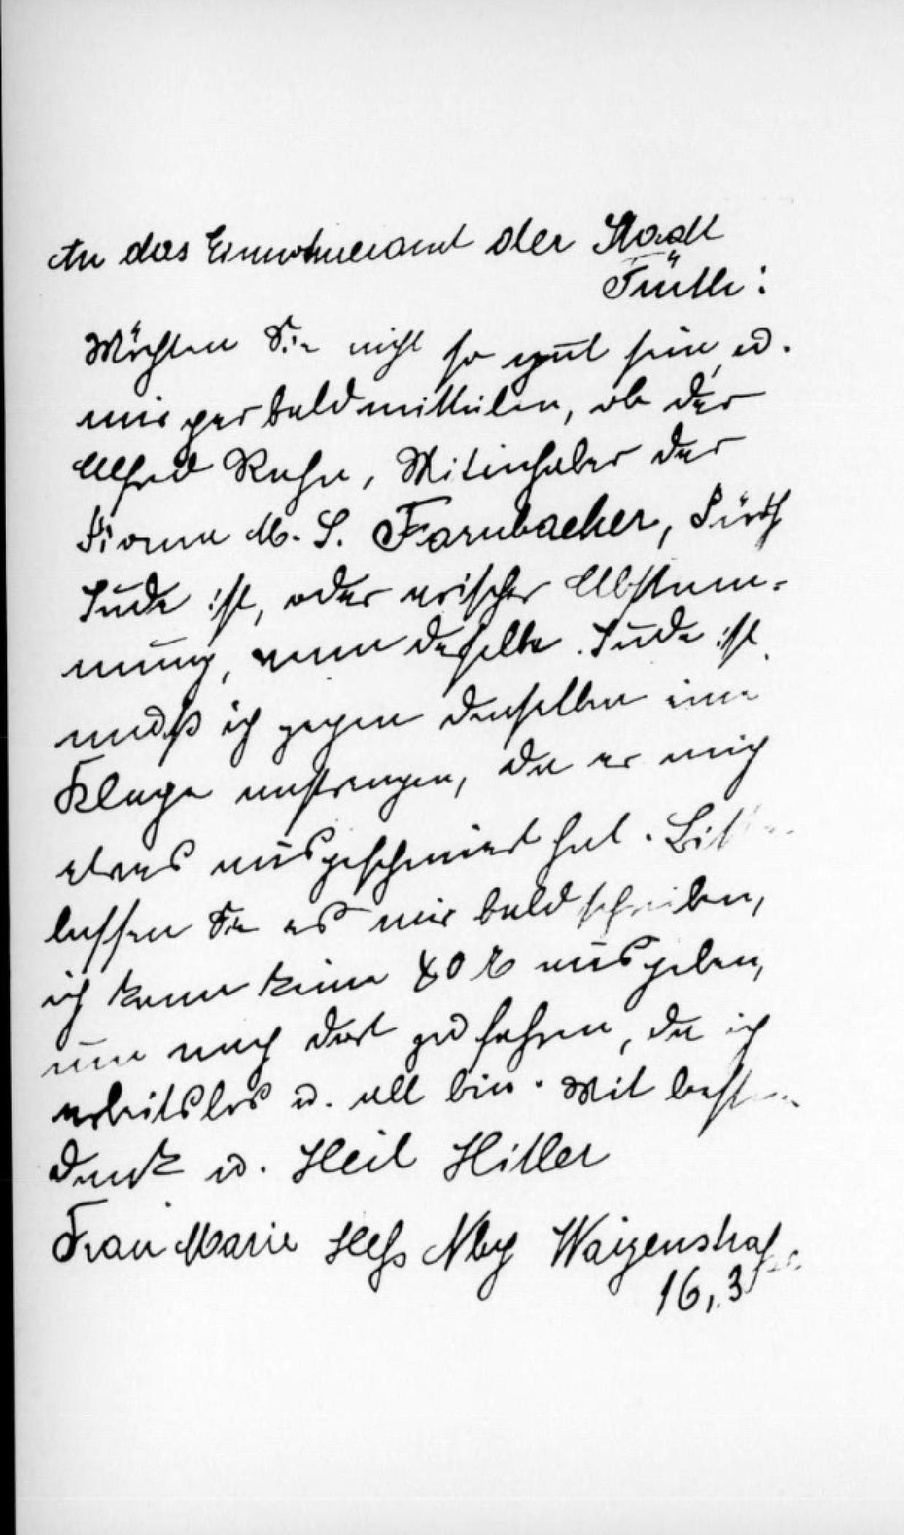 An das Einwohneramt der Stadt
Fürth:
Möchten Sie nicht so gut sein, u.
mir gar bald mitteilen, ob der
Alfred Kuhn, Mitinhaber der
Firma M. S. Farnbacher, Fürth
Jude ist, oder arischer Abstam-
mung, wenn derselbe Jude ist
muß ich gegen denselben eine
Klage anstrengen, da er mich
etwas ausgeschmiert hat. Bitte
lassen Sie es mir bald schreiben,
ich kann keine 80 ausgeben,
um nach dort zu fahren, da ich
arbeitslos u. alt bin. Mit besten
Dank u. Heil Hitler
Frau Marie Heß Nbg Waizenstraße
16,3